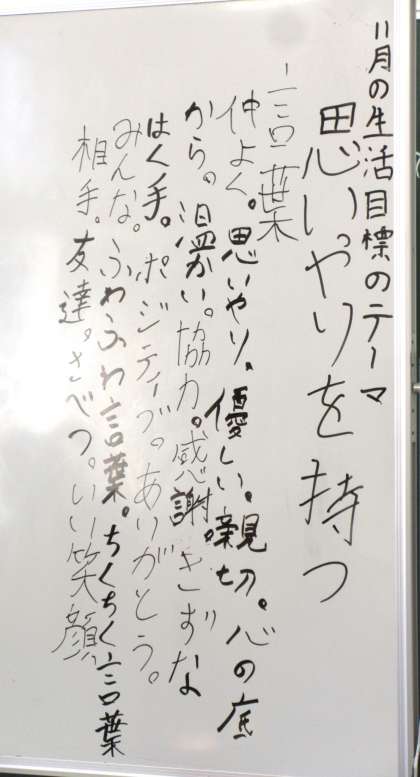 11月の生活目標のテーマ
思いやりを持つ
言葉
仲よく。思いやり、優しい。親切。心の底
から。温かい。協力。感謝。きずな
はく手。ポジティブ。ありがとう。
みんな。ふわふわ言葉。ちくちく言葉
相手。友達。さべつ。いい笑顔